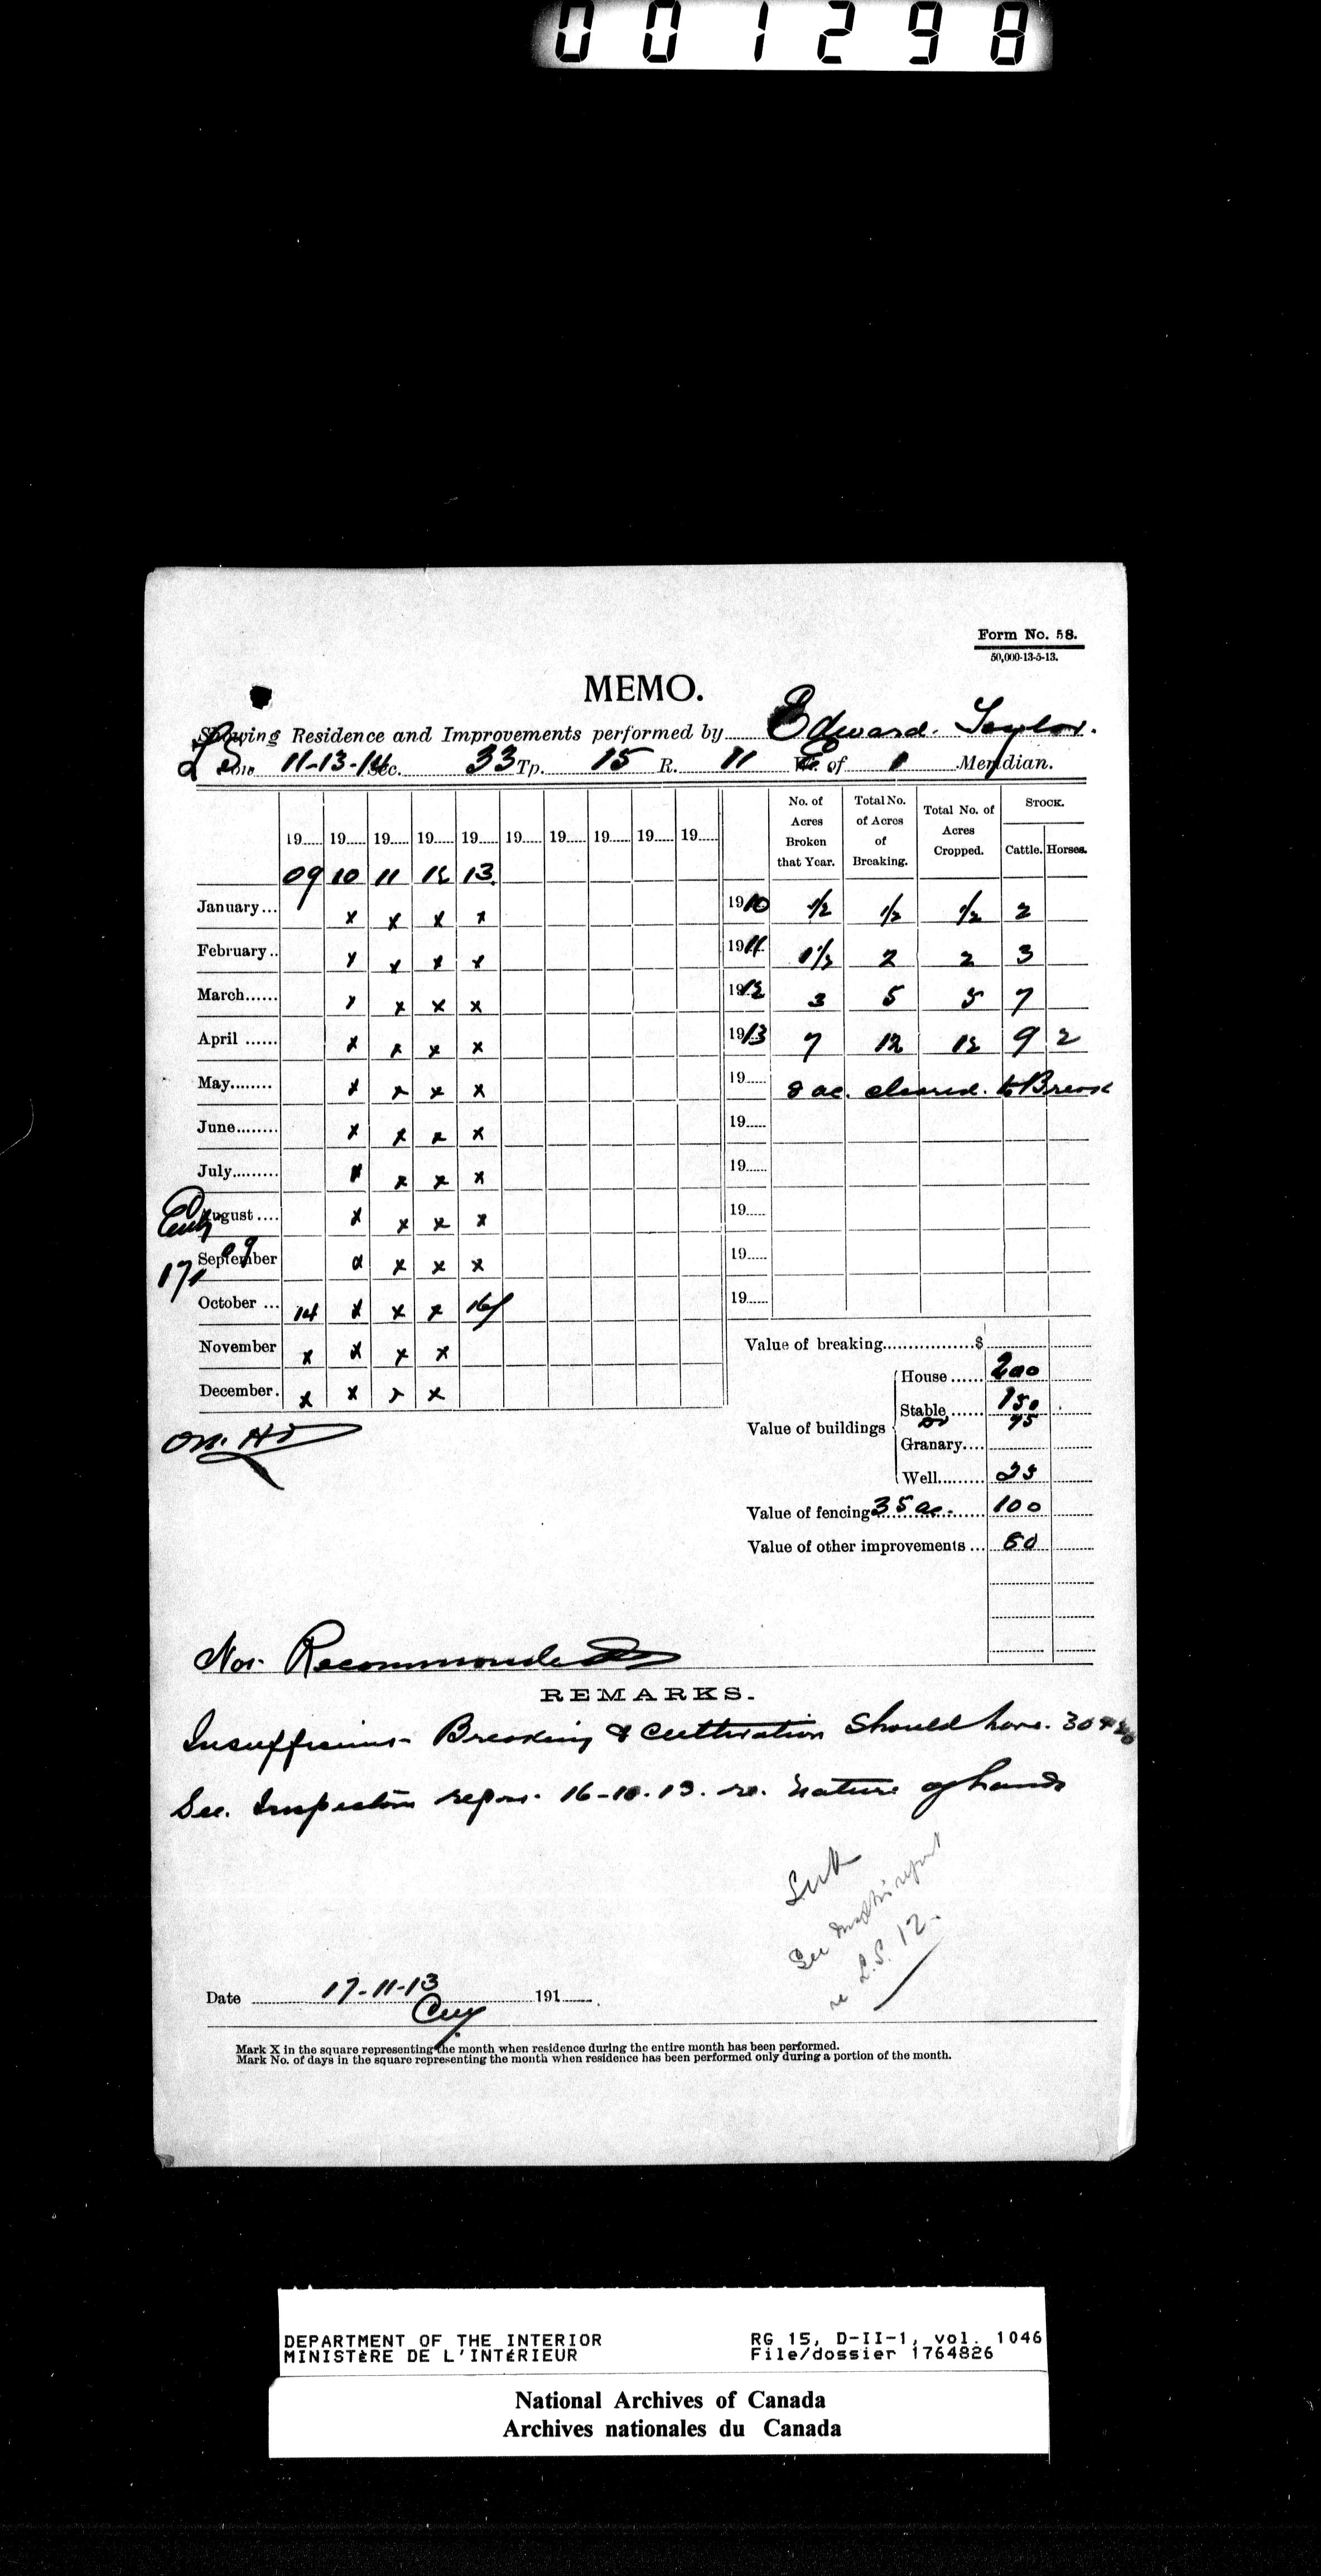 001298
Form No. 58.
50,000-13-5-13.
MEMO.
Showing Residence and Improvements performed by Edward Taylor.
LS 11-13-14 Sec. 33 Tp. 15 R. 11 E. of 1 Meridian.
19 19 19 19 19 19 19 19 19 19 No. of Acres Broken that Year. Total No. of Acres of Breaking. Total No. of Acres Cropped. STOCK. Cattle. Horses.
09 10 11 12 13
January x x x x 1910 1/2 1/2 1/2 2
February x x x x 1911 1 1/2 2 2 3
March x x x x 1912 3 5 5 7
April x x x x 1913 7 12 12 9 2
May x x x x 19 8 ac. cleared. to Break
June x x x x 19
July x x x x 19
August x x x x 19
September x x x x 19
Entry
17/ 09
October 14 x x x 16/ 19
November x x x x
December x x x x
Value of breaking $
Value of buildings
House 200
Stable 150
75
Granary
Well 25
Value of fencing 35 ac. 100
Value of other improvements 50
On. Hd
Not Recommended
REMARKS.
Insufficient Breaking & Cultivation Should have 30
See Inspectors report 16-10-13. re. Nature of lands
See
report
re L.S. 12.
Date 17-11-13 191
Mark X in the square representing the month when residence during the entire month has been performed.
Mark No. of days in the square representing the month when residence has been performed only during a portion of the month.
DEPARTMENT OF THE INTERIOR
MINISTÈRE DE L'INTÉRIEUR
RG 15, D-II-1, vol. 1046
File/dossier 1764826
National Archives of Canada
Archives nationales du Canada